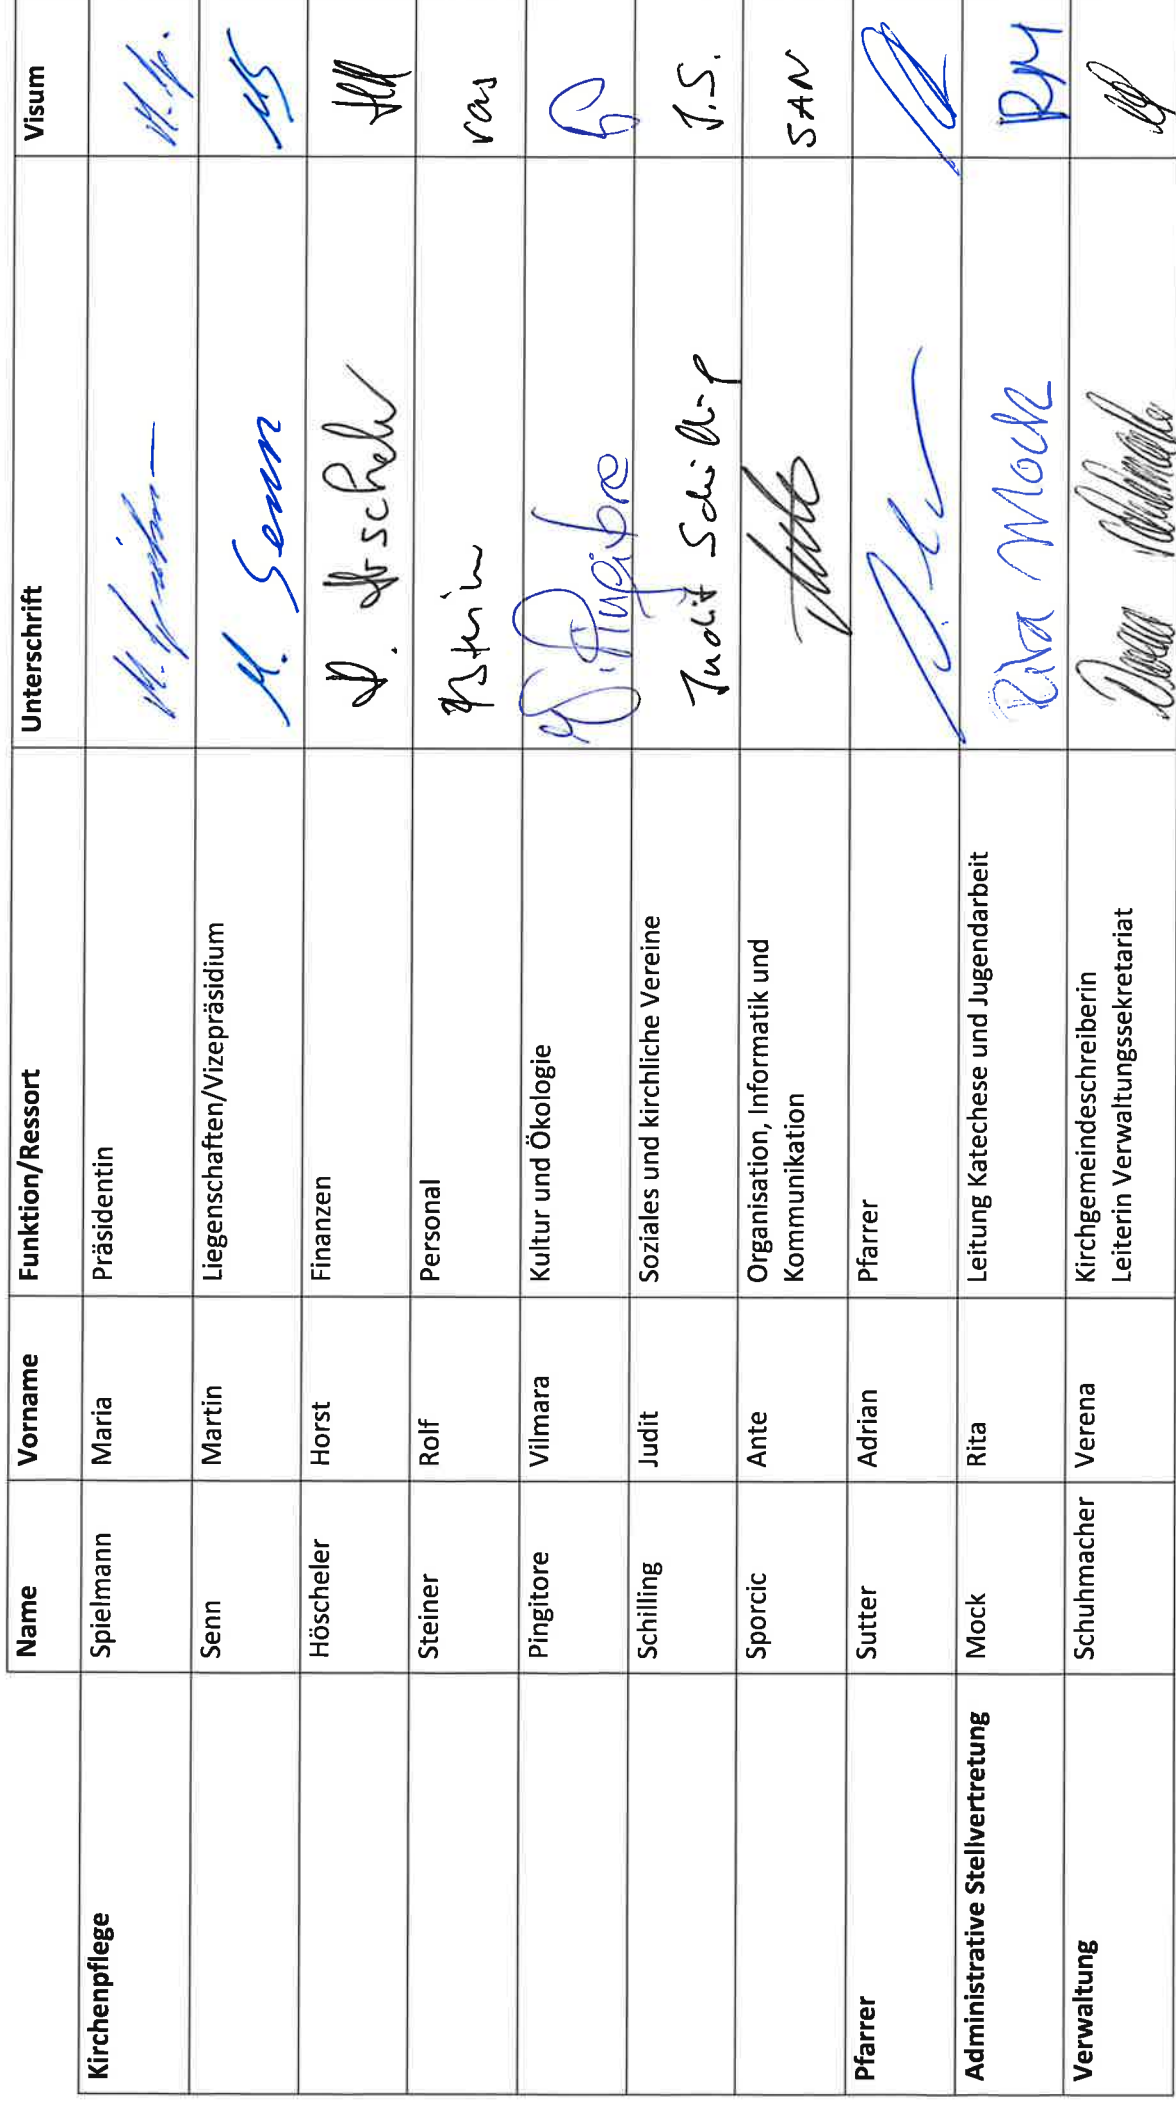 Name Vorname Funktion/Ressort Unterschrift Visum
Kirchenpflege Spielmann Maria Präsidentin
Senn Martin Liegenschaften/Vizepräsidium M. Senn
Höscheler Horst Finanzen
Steiner Rolf Personal ras
Pingitore Vilmara Kultur und Ökologie
Schilling Judit Soziales und kirchliche Vereine Judit Schilling J.S.
Sporcic Ante Organisation, Informatik und
Kommunikation SAN
Pfarrer Sutter Adrian Pfarrer
Administrative Stellvertretung Mock Rita Leitung Katechese und Jugendarbeit Rita Mock RM
Verwaltung Schuhmacher Verena Kirchgemeindeschreiberin
Leiterin Verwaltungssekretariat